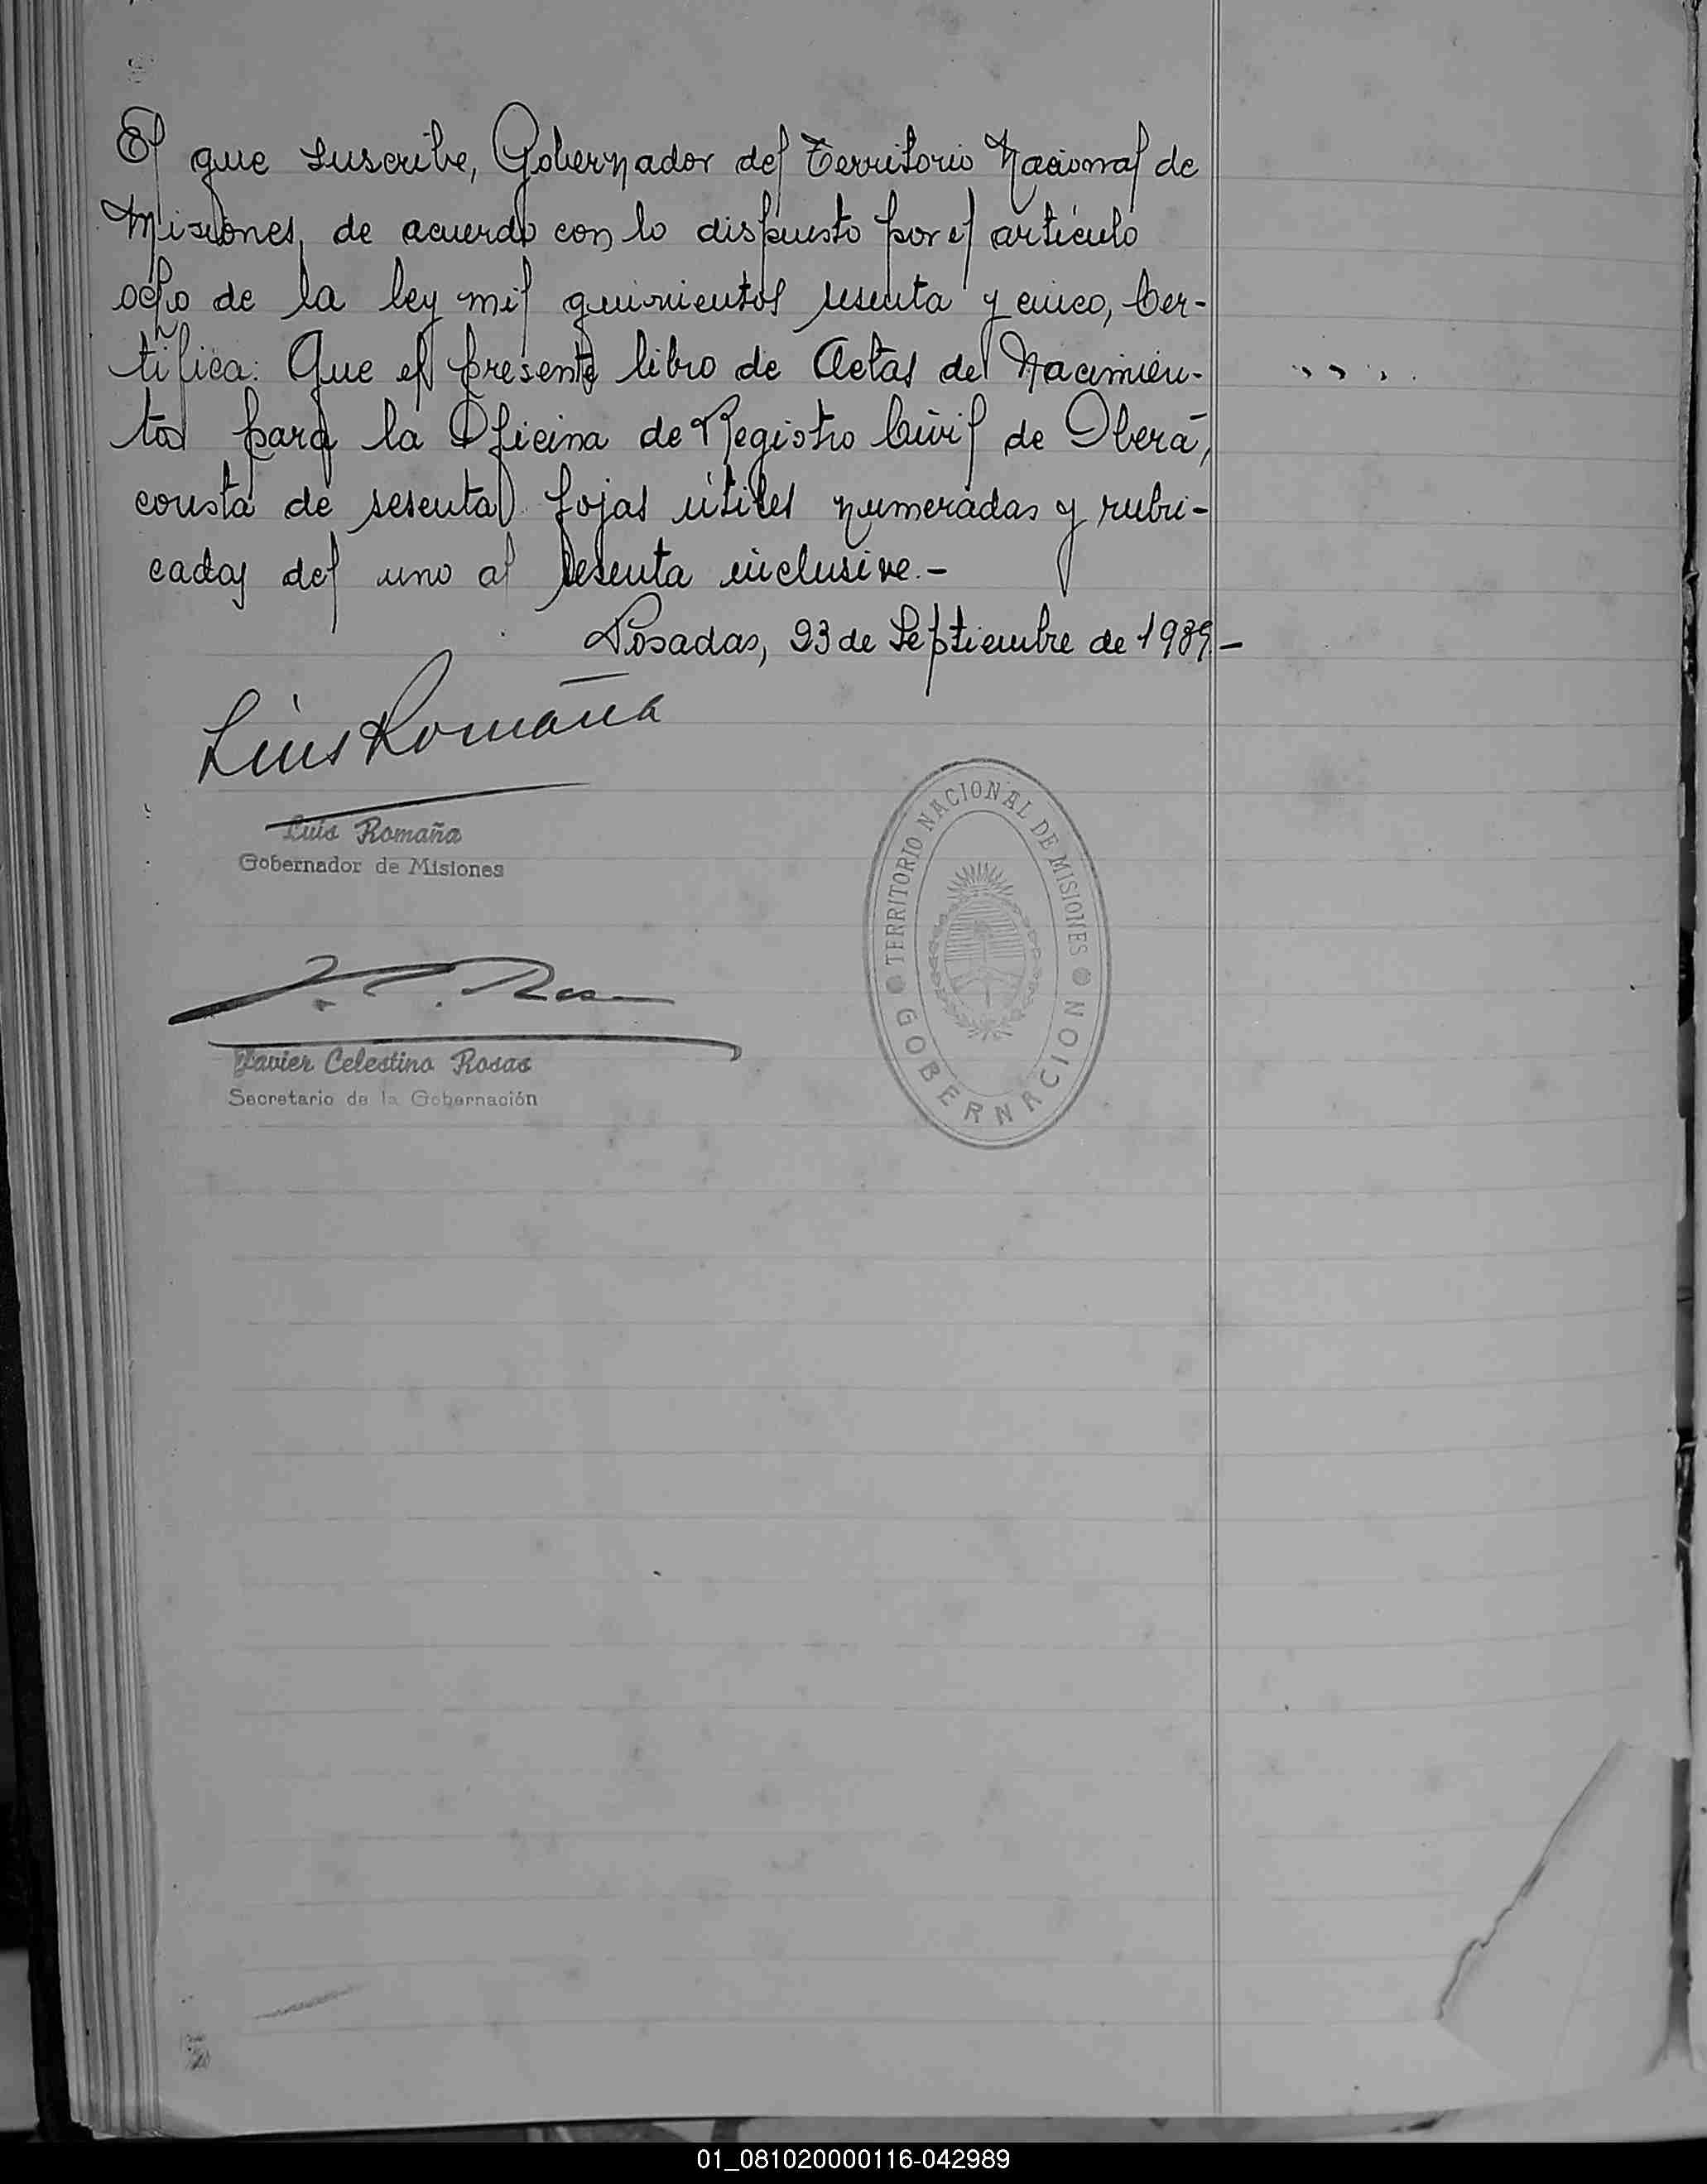 El que suscribe, Gobernador del Territorio Nacional de
Misiones, de acuerdo con lo dispuesto por el artículo
ocho de la ley mil quinientos sesenta y cinco, Cer-
tifica: Que el presente libro de Actas de Nacimien-
tos para la Oficina de Registro Civil de Oberá,
consta de sesenta fojas útiles numeradas y rubri-
cadas del uno al sesenta inclusive.-
Posadas, 23 de Septiembre de 1939.-
Luis Romaña
Luis Romaña
Gobernador de Misiones
TERRITORIO NACIONAL DE MISIONES
GOBERNACION
J. C. Rosas
Javier Celestino Rosas
Secretario de la Gobernación
01_081020000116-042989